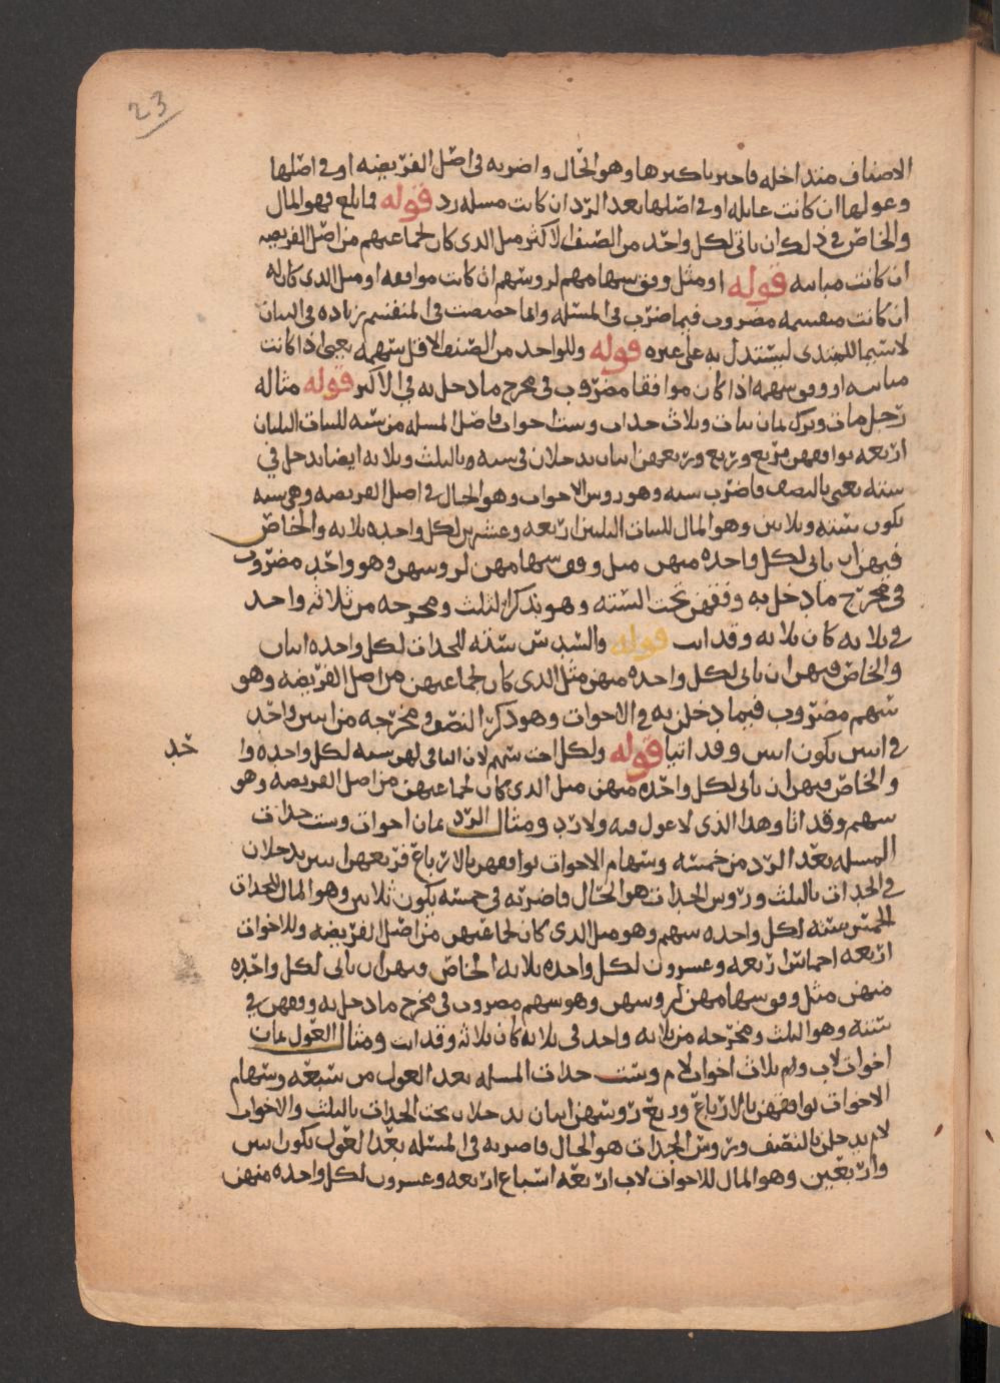 23
الاصناف متداخله فاجتز باكبرها وهو الحال واضربه في اصل الفريضه او في اصلها
وعولها ان كانت عايله او في اصلها بعد الرد ان كانت مسله رد قوله فما بلغ فهو المال
والخاص في ذلك ان ياتي لكل واحد من الصنف الاكثر مثل الذي كان لجماعتهم من اصل الفريضه
ان كانت مباينه قوله او مثل وفق سهامهم لروسهم ان كانت موافقه او مثل الذي كان له
ان كانت منقسمه مضروب فيما ضرب في المسئله وانما خصصت في المنقسم زياده في البيان
لا سيما للمبتدي ليستدل به على غيره قوله وللواحد من الصنف الاقل سهمه يعني اذا كانت
مباينه او وفق سهمه اذا كان موافقا مضروب في مخرج ما دخل به في الاكبر قوله مثاله
رجل مات وترك ثمان بنات وثلاث جدات وست اخوات فاصل المسله من سته للبنات الثلثان
اربعه توافقهن بربع وربع وربعهن اثنان يدخلان في سته وبالثلث وثلاثه ايضا يدخل في
سته يعني بالنصف فاضرب سته وهو روس الاخوات وهو الحال في اصل الفريضه وهي سته
تكون سته وثلاثين وهو المال للبنات الثلثين اربعه وعشرين لكل واحده ثلاثه والخاص
فيهن ان ياتي لكل واحده منهن مثل وفق سهامهن لروسهن وهو واحد مضروب
في مخرج ما دخل به وفقهن تحت السته وهو بذكر الثلث ومخرجه من ثلاثه واحد
في ثلاثه كان ثلاثه وقد اتت قوله والسدس سته للجدات لكل واحده اثنان
والخاص فيهن ان ياتي لكل واحده منهن مثل الذي كان لجماعتهن من اصل الفريضه وهو
سهم مضروب فيما دخلن به في الاخوات وهو ذكر النصف ومخرجه من اثنين واحد
في اثنين يكون اثنين وقد اتيا قوله ولكل اخت سهم لان الباقي لهن سته لكل واحده وا
حد
والخاص فيهن ان ياتي لكل واحده منهن مثل الذي كان لجماعتهن من اصل الفريضه وهو
سهم وقد اتا وهذا الذي لا عول فيه ولا رد ومثال الرد ثمان اخوات وست جدات
المسله بعد الرد من خمسه وسهام الاخوات توافقهن بالارباع فربعهن اثنين يدخلان
في الجدات بالثلث وروس الجدات هو الحال فاضربه في خمسه يكون ثلاثين وهو المال للجدات
الخمس سته لكل واحده سهم وهو مثل الذي كان لجماعتهن من اصل الفريضه وللاخوات
اربعه اخماس اربعه وعشرون لكل واحده ثلاثه الخاص فيهن ان ياتي لكل واحده
منهن مثل وفق سهامهن لروسهن وهو سهم مضروب في مخرج ما دخل به وفقهن في
سته وهو الثلث ومخرجه من ثلاثه واحد في ثلاثه كان ثلاثه وقد اتت ومثال العول ثمان
اخوات لاب وام ثلاث اخوات لام وست جدات المسله بعد العول من سبعه وسهام
الاخوات توافقهن بالارباع وربع روسهن اثنان يدخلان تحت الجدات بالثلث والاخوات
لام يدخلن بالنصف وروس الجدات هو الحال فاضربه في المسئله بعد العول يكون اثنين
واربعين وهو المال للاخوات لاب اربعه اسباع اربعه وعشرون لكل واحده منهن